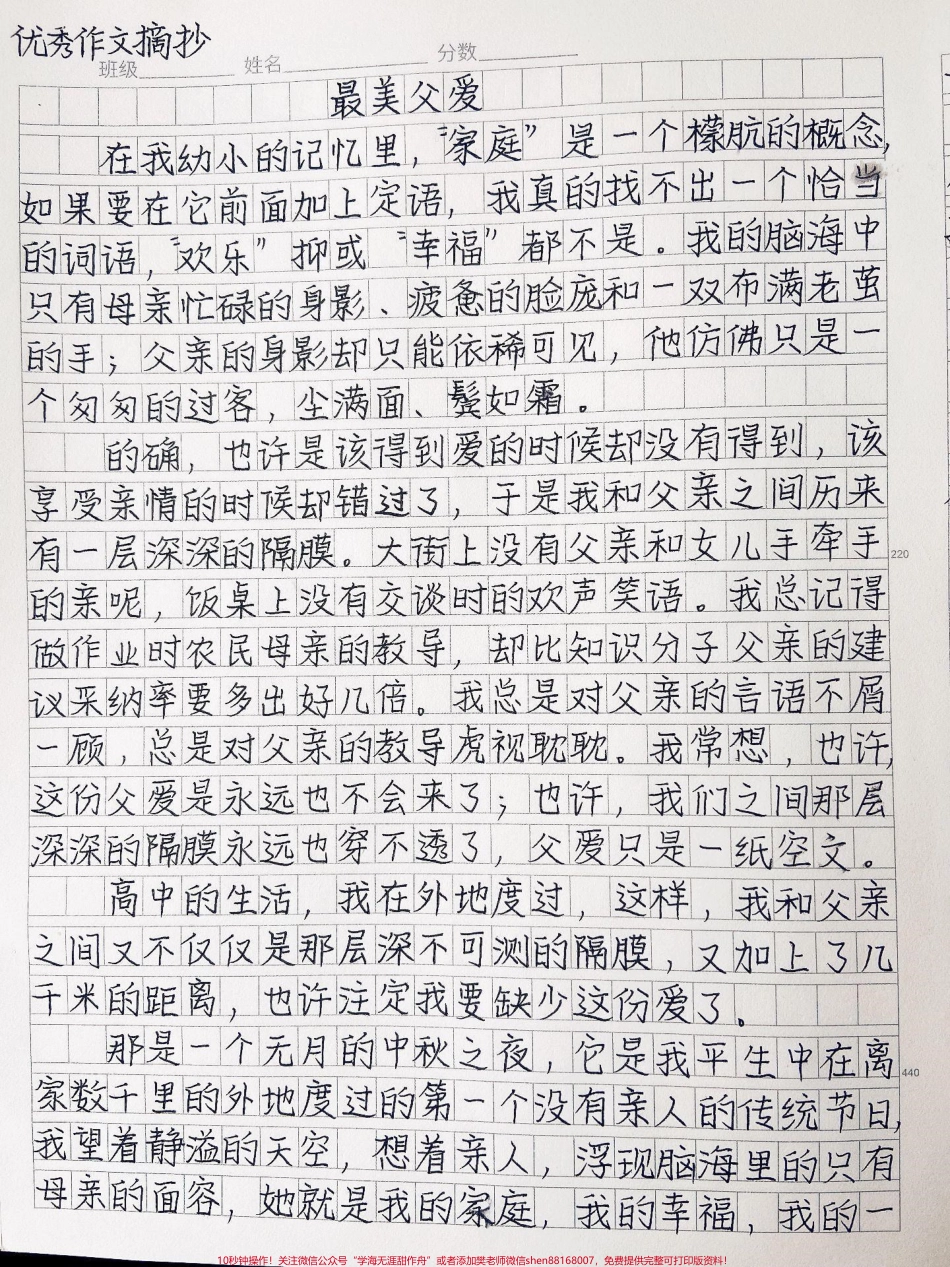 优秀作文摘抄
班级 姓名 分数
最美父爱
在我幼小的记忆里，“家庭”是一个檬肮的概念，
如果要在它前面加上定语，我真的找不出一个恰当
的词语，“欢乐”抑或“幸福”都不是。我的脑海中
只有母亲忙碌的身影、疲惫的脸庞和一双布满老茧
的手；父亲的身影却只能依稀可见，他仿佛只是一
个匆匆的过客，尘满面、鬓如霜。
的确，也许是该得到爱的时候却没有得到，该
享受亲情的时候却错过了，于是我和父亲之间历来
有一层深深的隔膜。大街上没有父亲和女儿手牵手
220
的亲昵，饭桌上没有交谈时的欢声笑语。我总记得
做作业时农民母亲的教导，却比知识分子父亲的建
议采纳率要多出好几倍。我总是对父亲的言语不屑
一顾，总是对父亲的教导虎视耽耽。我常想，也许，
这份父爱是永远也不会来了；也许，我们之间那层
深深的隔膜永远也穿不透了，父爱只是一纸空文。
高中的生活，我在外地度过，这样，我和父亲
之间又不仅仅是那层深不可测的隔膜，又加上了几
千米的距离，也许注定我要缺少这份爱了。
那是一个无月的中秋之夜，它是我平生中在离
440
家数千里的外地度过的第一个没有亲人的传统节日，
我望着静溢的天空，想着亲人，浮现脑海里的只有
母亲的面容，她就是我的家庭，我的幸福，我的一
10秒钟操作！关注微信公众号“学海无涯甜作舟”或者添加樊老师微信shen88168007，免费提供完整可打印版资料！